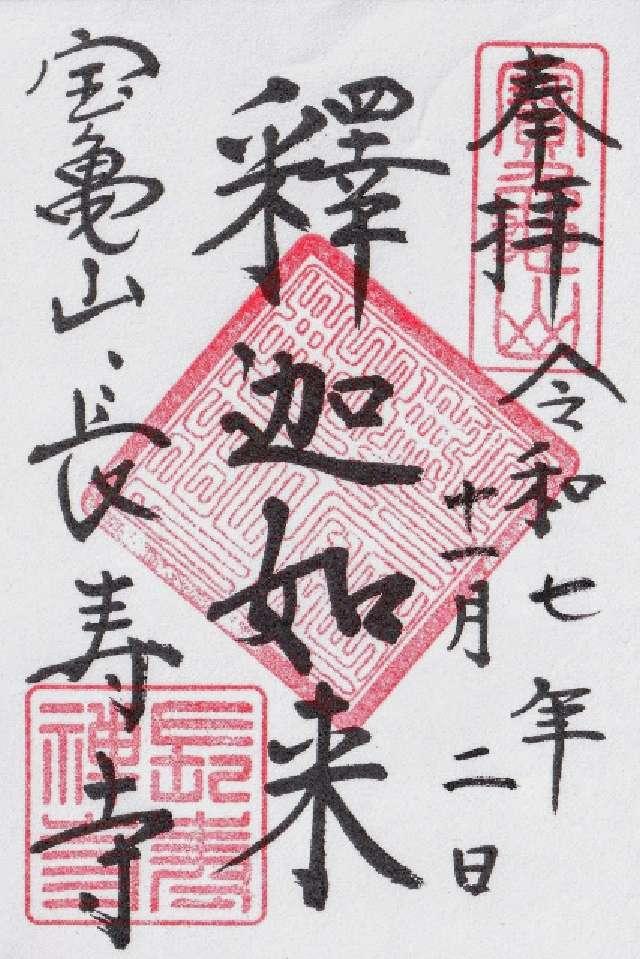 奉拝
令和七年
十一月二日
釋迦如来
宝亀山、長寿寺
寶龜山
長壽禅寺